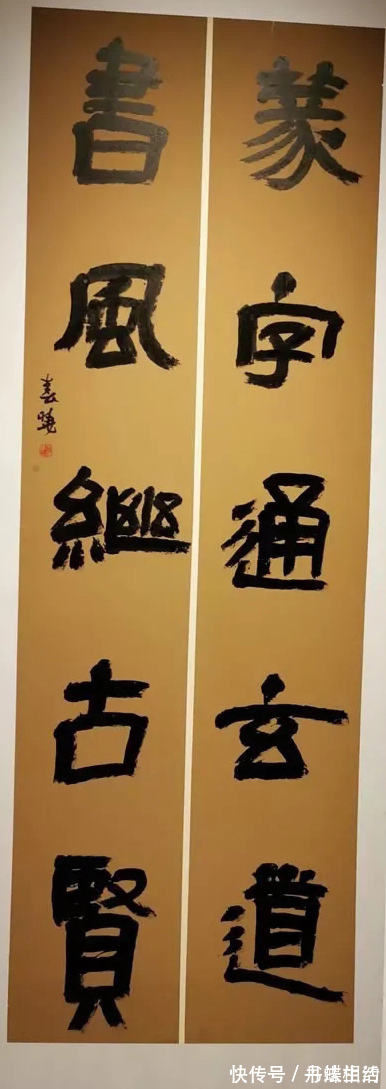 篆字通玄道
書風繼古賢
快传号 /